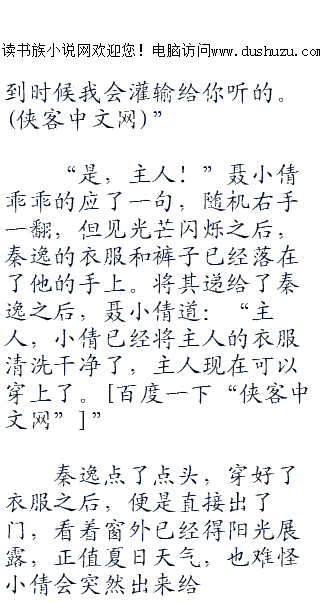 读书族小说网欢迎您！电脑访问www.dushuzu.com
到时候我会灌输给你听的。
(侠客中文网)”
“是，主人！”聂小倩
乖乖的应了一句，随机右手
一翻，但见光芒闪烁之后，
秦逸的衣服和裤子已经落在
了他的手上。将其递给了秦
逸之后，聂小倩道：“主
人，小倩已经将主人的衣服
清洗干净了，主人现在可以
穿上了。[百度一下“侠客中
文网”]”
秦逸点了点头，穿好了
衣服之后，便是直接出了
门，看着窗外已经得阳光展
露，正值夏日天气，也难怪
小倩会突然出来给